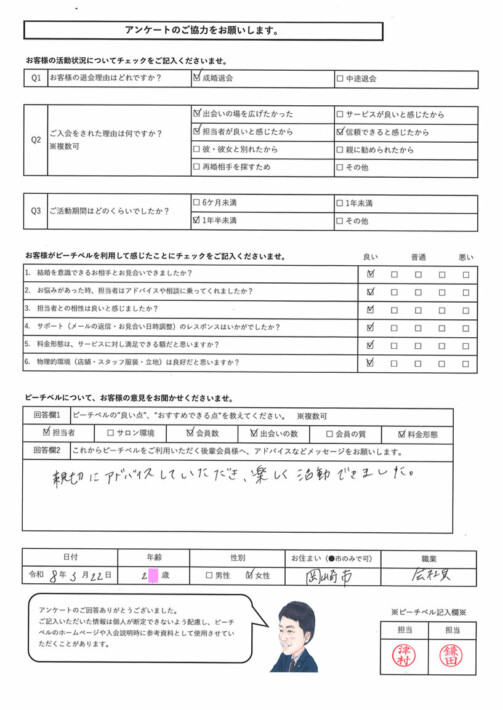 アンケートのご協力をお願いします。
お客様の活動状況についてチェックをご記入くださいませ。
Q1 お客様の退会理由はどれですか？ ☑成婚退会 □中途退会
Q2 ご入会をされた理由は何ですか？ ※複数可
☑出会いの場を広げたかった □サービスが良いと感じたから
☑担当者が良いと感じたから ☑信頼できると感じたから
□彼・彼女と別れたから □親に勧められたから
□再婚相手を探すため □その他
Q3 ご活動期間はどのくらいでしたか？
□6ケ月未満 □1年未満
☑1年半未満 □その他
お客様がピーチベルを利用して感じたことにチェックをご記入くださいませ。 良い 普通 悪い
1. 結婚を意識できるお相手とお見合いできましたか？ ☑ □ □ □ □
2. お悩みがあった時、担当者はアドバイスや相談に乗ってくれましたか？ ☑ □ □ □ □
3. 担当者との相性は良いと感じましたか？ ☑ □ □ □ □
4. サポート（メールの返信・お見合い日時調整）のレスポンスはいかがでしたか？ ☑ □ □ □ □
5. 料金形態は、サービスに対し満足できる額だと思いますか？ ☑ □ □ □ □
6. 物理的環境（店舗・スタッフ服装・立地）は良好だと思いますか？ ☑ □ □ □ □
ピーチベルについて、お客様の意見をお聞かせくださいませ。
回答欄1 ピーチベルの“良い点”、“おすすめできる点”を教えてください。 ※複数可
☑担当者 □サロン環境 ☑会員数 ☑出会いの数 □会員の質 ☑料金形態
回答欄2 これからピーチベルをご利用いただく後輩会員様へ、アドバイスなどメッセージをお願いします。
親切にアドバイスしていただき、楽しく活動できました。
日付 年齢 性別 お住まい（●市のみで可） 職業
令和 8年 3月 22日 2 歳 □男性 ☑女性 岡崎市 会社員
アンケートのご回答ありがとうございました。
ご記入いただいた情報は個人が断定できないよう配慮し、ピーチ
ベルのホームページや入会説明時に参考資料として使用させてい
ただくことがあります。
※ピーチベル記入欄※
担当 担当
津村 鎌田